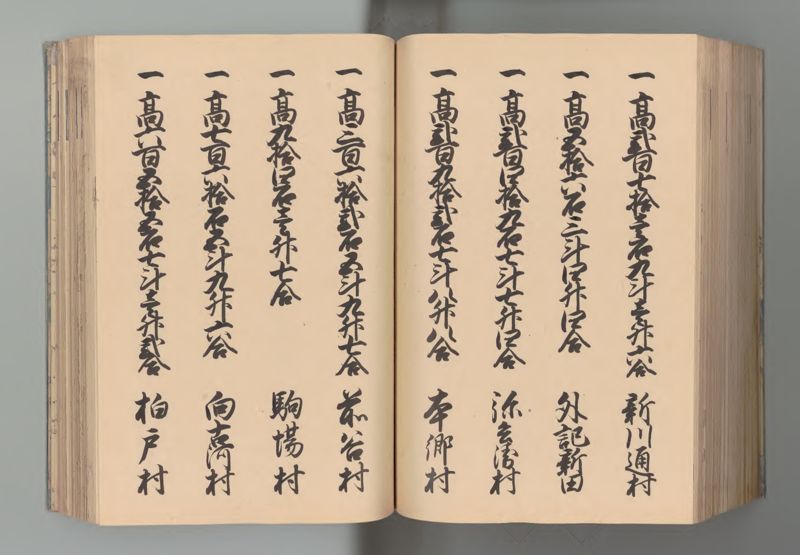 一高弐百七拾壱石九斗壱升六合 新川通村
一高五拾六石三斗四升四合 外記新田
一高弐百四拾九石七斗七升四合 弥兵衛村
一高弐百九拾弐石七斗八升八合 本郷村
一高三百六拾弐石五斗九升七合 前谷村
一高九拾四石壱升七合 駒場村
一高七百六拾石五斗九升六合 向古河村
一高六百五拾五石七斗壱升弐合 柏戸村